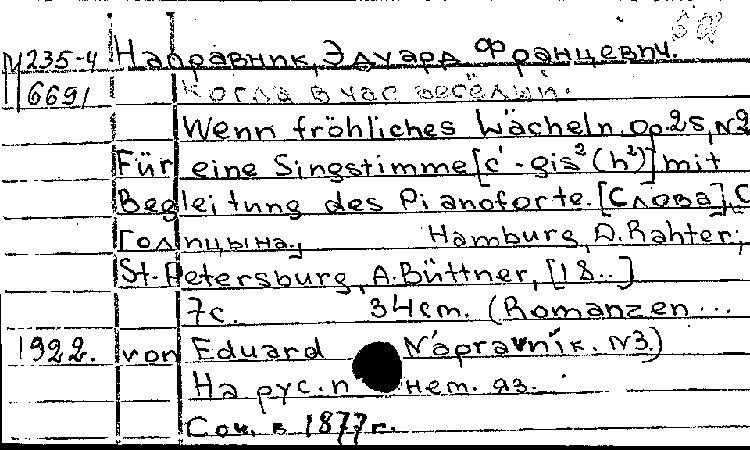 М235-4 Направник, Эдуард Францевич.
6691 Когда в час весёлый.
Wenn fröhliches Lächeln. Op.25, N2
Für eine Singstimme [c'-gis²(h²)] mit
Begleitung des Pianoforte. [Слова] С
Голицына. Hamburg, D. Rahter;
St.-Petersburg, A. Büttner, [18..]
7с. 34cm. (Romanzen ...
1922. von Eduard Nápravník. N3.)
На рус. и нем. яз.
Соч. в 1877г.